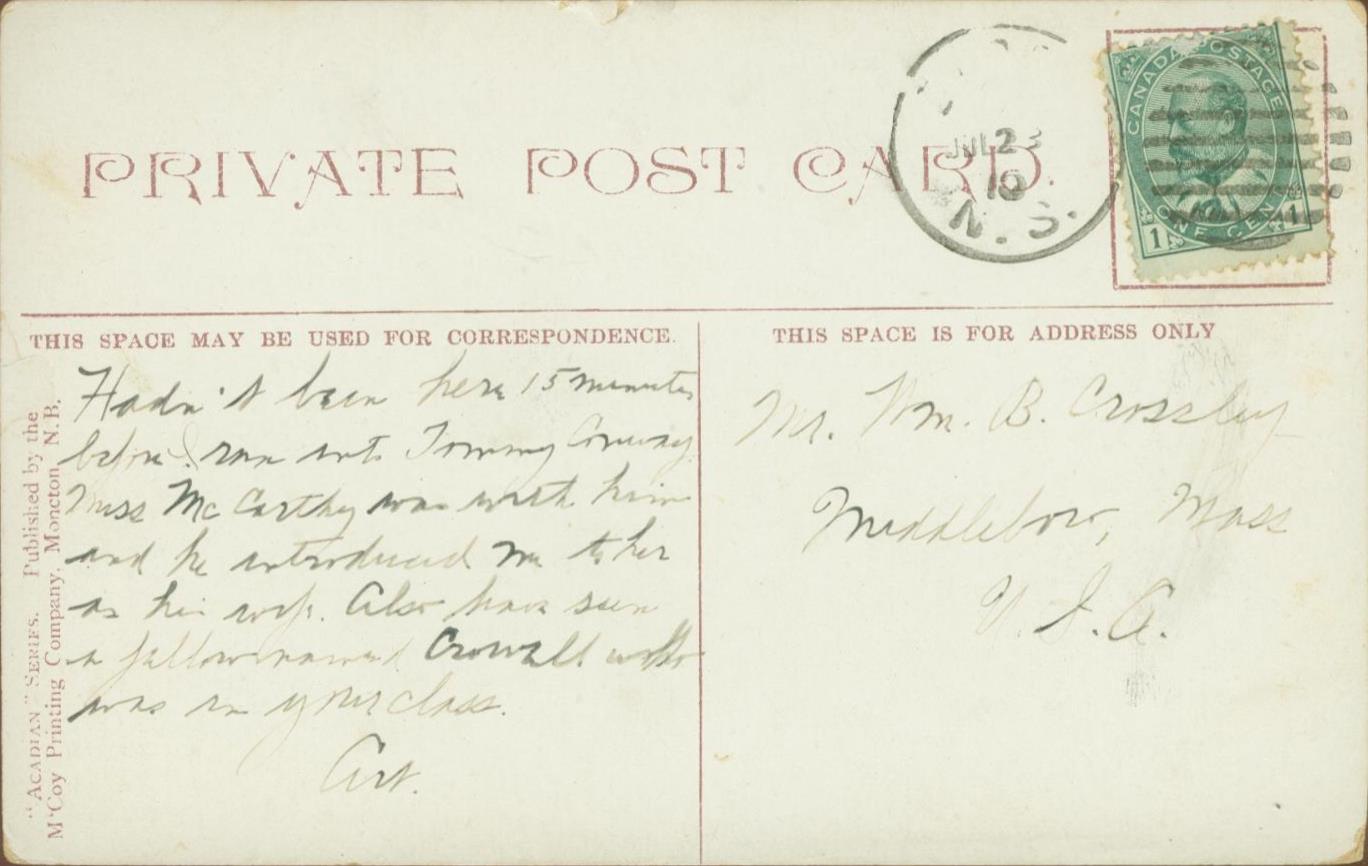 PRIVATE POST CARD.
JUL 23
10
N. S.
CANADA POSTAGE
1 ONE CENT 1
THIS SPACE MAY BE USED FOR CORRESPONDENCE.
Hadn't been here 15 minutes
before I ran into Tommy Conway
Miss McCarthy was with him
and he introduced me to her
as his wife. Also have seen
a fellow named Crowell who
was in your class.
Art.
THIS SPACE IS FOR ADDRESS ONLY
Mr. Wm. B. Crossley
Middleboro, Mass
U.S.A.
"ACADIAN" SERIES. Published by the
McCoy Printing Company, Moncton, N.B.